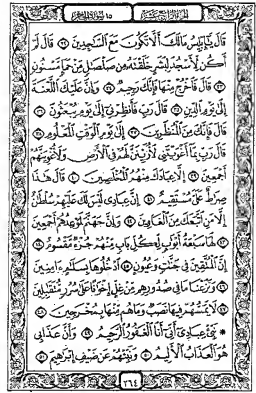 الجزء الرابع عشر ١٥ سورة الحجر
قَالَ يَٰٓإِبْلِيسُ مَالَكَ أَلَّا تَكُونَ مَعَ ٱلسَّٰجِدِينَ ٣٢ قَالَ لَمْ
أَكُن لِّأَسْجُدَ لِبَشَرٍ خَلَقْتَهُۥ مِن صَلْصَٰلٍ مِّنْ حَمَإٍ مَّسْنُونٍ ٣٣
قَالَ فَٱخْرُجْ مِنْهَا فَإِنَّكَ رَجِيمٌ ٣٤ وَإِنَّ عَلَيْكَ ٱللَّعْنَةَ
إِلَىٰ يَوْمِ ٱلدِّينِ ٣٥ قَالَ رَبِّ فَأَنظِرْنِىٓ إِلَىٰ يَوْمِ يُبْعَثُونَ ٣٦
قَالَ فَإِنَّكَ مِنَ ٱلْمُنظَرِينَ ٣٧ إِلَىٰ يَوْمِ ٱلْوَقْتِ ٱلْمَعْلُومِ ٣٨
قَالَ رَبِّ بِمَآ أَغْوَيْتَنِى لَأُزَيِّنَنَّ لَهُمْ فِى ٱلْأَرْضِ وَلَأُغْوِيَنَّهُمْ
أَجْمَعِينَ ٣٩ إِلَّا عِبَادَكَ مِنْهُمُ ٱلْمُخْلَصِينَ ٤٠ قَالَ هَٰذَا
صِرَٰطٌ عَلَىَّ مُسْتَقِيمٌ ٤١ إِنَّ عِبَادِى لَيْسَ لَكَ عَلَيْهِمْ سُلْطَٰنٌ
إِلَّا مَنِ ٱتَّبَعَكَ مِنَ ٱلْغَاوِينَ ٤٢ وَإِنَّ جَهَنَّمَ لَمَوْعِدُهُمْ أَجْمَعِينَ
٤٣ لَهَا سَبْعَةُ أَبْوَٰبٍ لِّكُلِّ بَابٍ مِّنْهُمْ جُزْءٌ مَّقْسُومٌ ٤٤
إِنَّ ٱلْمُتَّقِينَ فِى جَنَّٰتٍ وَعُيُونٍ ٤٥ ٱدْخُلُوهَا بِسَلَٰمٍ ءَامِنِينَ
٤٦ وَنَزَعْنَا مَا فِى صُدُورِهِم مِّنْ غِلٍّ إِخْوَٰنًا عَلَىٰ سُرُرٍ مُّتَقَٰبِلِينَ
٤٧ لَا يَمَسُّهُمْ فِيهَا نَصَبٌ وَمَا هُم مِّنْهَا بِمُخْرَجِينَ ٤٨
۞ نَبِّئْ عِبَادِىٓ أَنِّىٓ أَنَا ٱلْغَفُورُ ٱلرَّحِيمُ ٤٩ وَأَنَّ عَذَابِى
هُوَ ٱلْعَذَابُ ٱلْأَلِيمُ ٥٠ وَنَبِّئْهُمْ عَن ضَيْفِ إِبْرَٰهِيمَ ٥١
٢٦٤